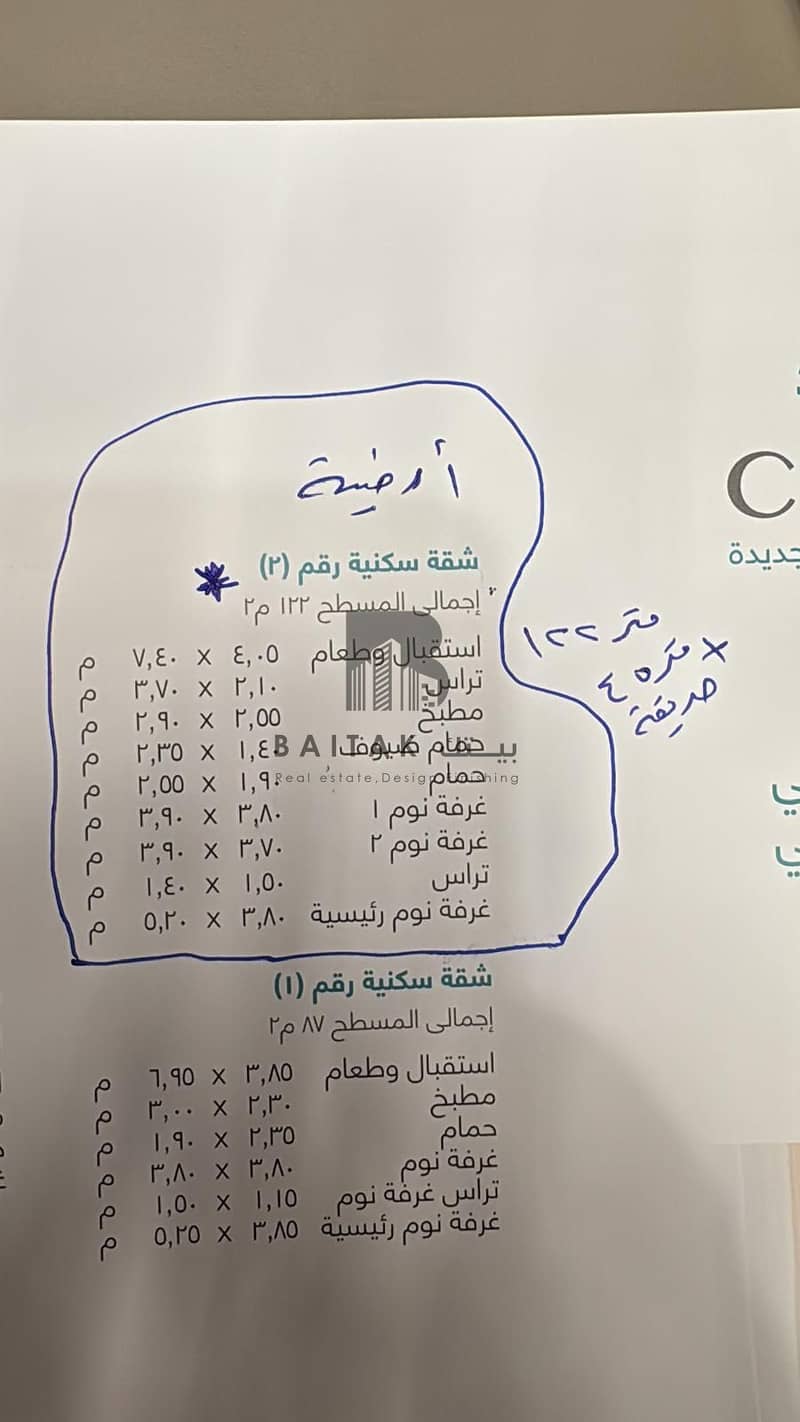 أرضية
شقة سكنية رقم (٢)
إجمالى المسطح ١٢٢ م٢
استقبال وطعام ٤,٠٥ x ٧,٤٠ م
تراس ٢,١٠ x ٣,٧٠ م
مطبخ ٢,٥٥ x ٢,٩٠ م
حمام ضيوف ١,٤٠ x ٢,٣٥ م
حمام ١,٩٠ x ٢,٥٥ م
غرفة نوم ١ ٣,٨٠ x ٣,٩٠ م
غرفة نوم ٢ ٣,٧٠ x ٣,٩٠ م
تراس ١,٥٠ x ١,٤٠ م
غرفة نوم رئيسية ٣,٨٠ x ٥,٢٠ م
١٢٢ متر
x ٤٥ متر
حديقة
BAITAK بيتك
Real estate,Design,Finishing
شقة سكنية رقم (١)
إجمالى المسطح ٨٧ م٢
استقبال وطعام ٣,٨٥ x ٦,٩٥ م
مطبخ ٢,٣٠ x ٣,٠٠ م
حمام ٢,٣٥ x ١,٩٠ م
غرفة نوم ٣,٨٠ x ٣,٨٠ م
تراس غرفة نوم ١,١٥ x ١,٥٠ م
غرفة نوم رئيسية ٣,٨٥ x ٥,٢٥ م
C
جديدة